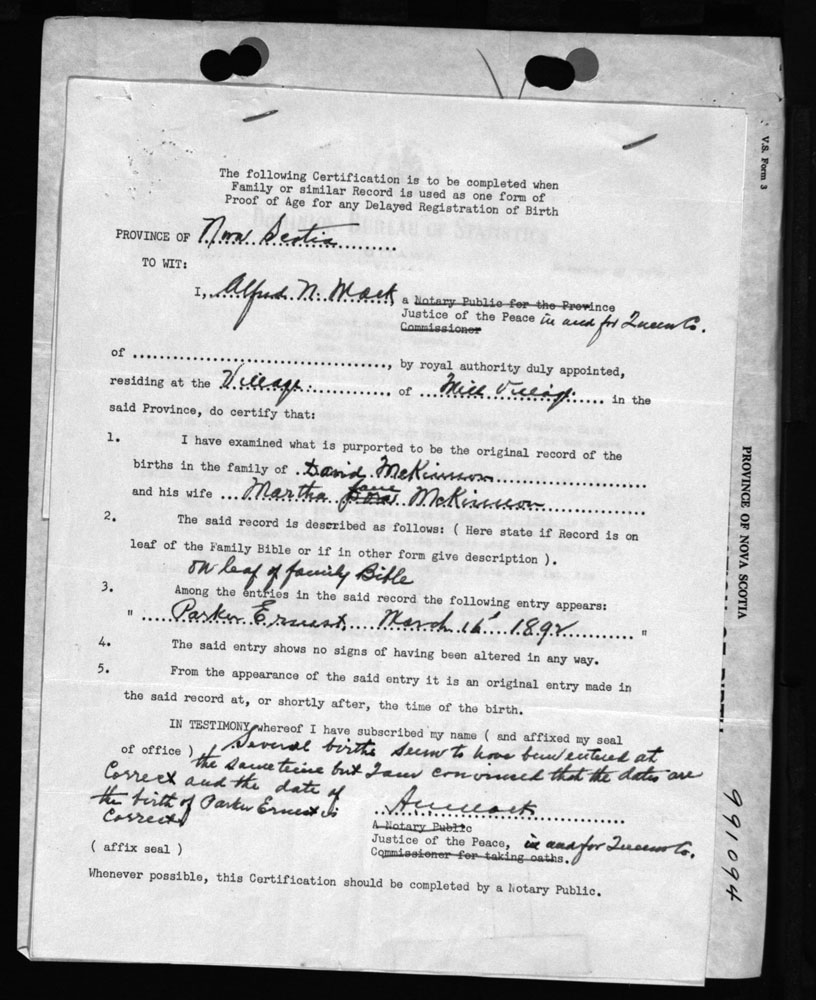 The following Certification is to be completed when
Family or similar Record is used as one form of
Proof of Age for any Delayed Registration of Birth
PROVINCE OF Nova Scotia
TO WIT:
I, Alfred N. Mack a Notary Public for the Province
Justice of the Peace in and for Queens Co.
Commissioner
of ........................................, by royal authority duly appointed,
residing at the Village of Mill Village in the
said Province, do certify that:
1. I have examined what is purported to be the original record of the
births in the family of David McKinnon
and his wife Martha Jane McKinnon
2. The said record is described as follows: ( Here state if Record is on
leaf of the Family Bible or if in other form give description ).
on leaf of family Bible
3. Among the entries in the said record the following entry appears:
" Parker Ernest March 16' 1892 "
4. The said entry shows no signs of having been altered in any way.
5. From the appearance of the said entry it is an original entry made in
the said record at, or shortly after, the time of the birth.
IN TESTIMONY whereof I have subscribed my name ( and affixed my seal
of office ) Several births seem to have been entered at
the same time but I am convinced that the dates are
correct and the date of
the birth of Parker Ernest is
correct
A N Mack
A Notary Public
Justice of the Peace, in and for Queens Co.
Commissioner for taking oaths.
( affix seal )
Whenever possible, this Certification should be completed by a Notary Public.
V.S. Form 3
PROVINCE OF NOVA SCOTIA
991094